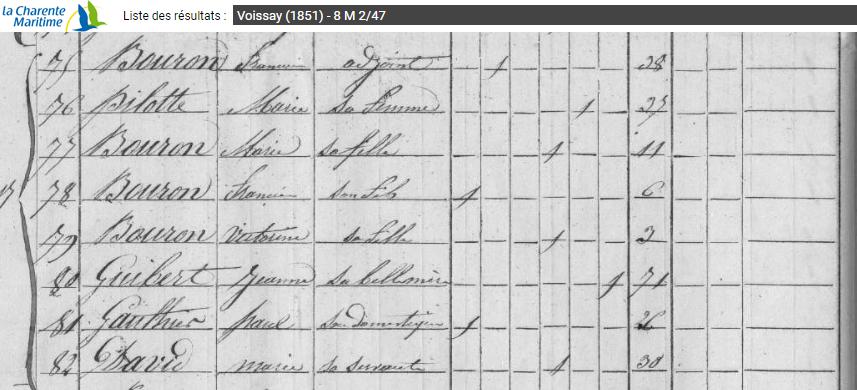 la Charente
Maritime
Liste des résultats : Voissay (1851) - 8 M 2/47
75 Bouron Francois adjoint 1 38
76 Pilotte Marie Sa femme 1
77 Bouron Marie Sa fille 1 11
78 Bouron Francois Son fils 1 6
79 Bouron Victorine Sa fille 1 3
80 Guibert Jeanne Sa belle mère 1 71
81 Gauthier paul Son domestique 1
82 David marie Sa servante 1 30